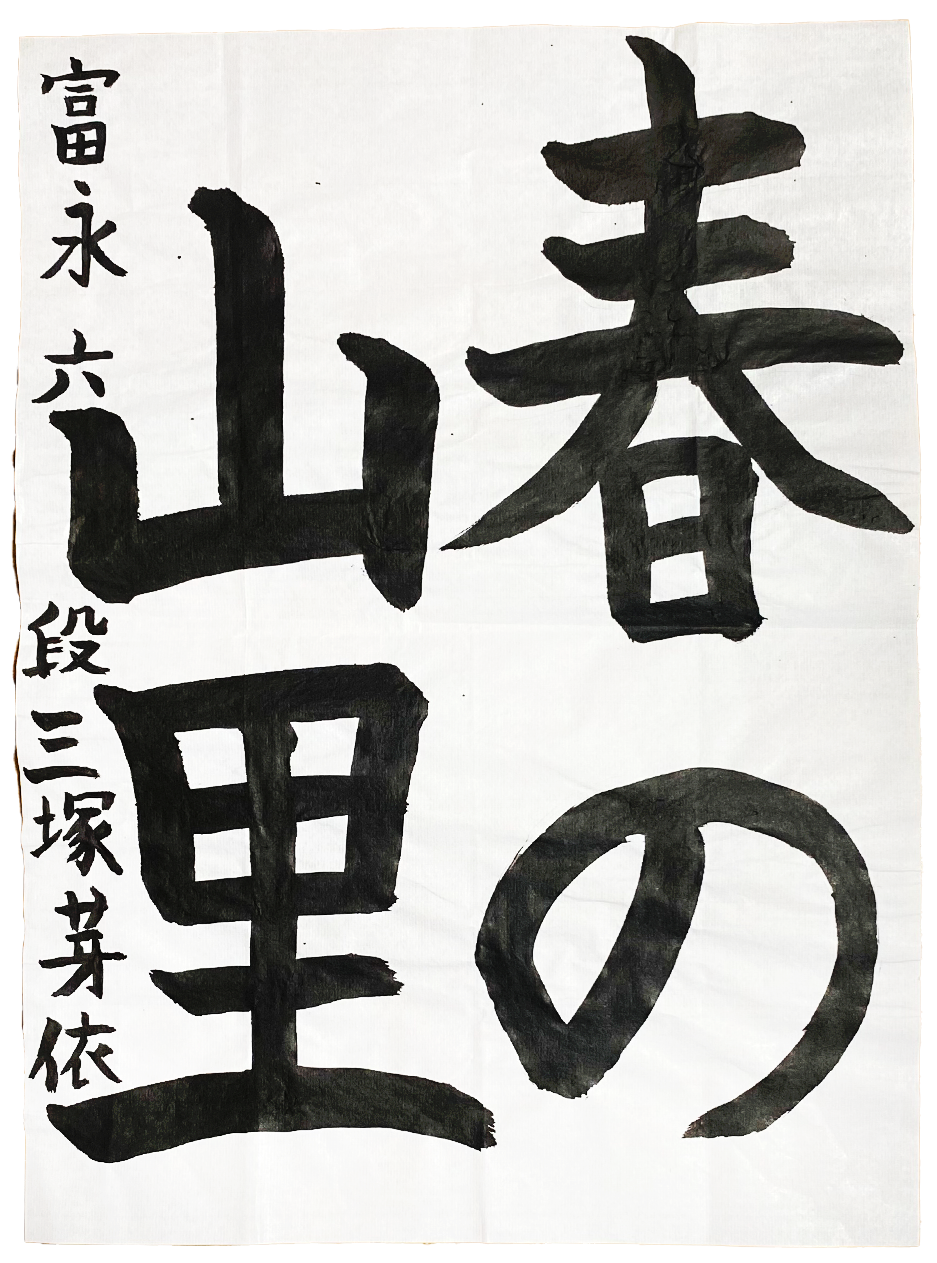 春の
山里
富永 六段 三塚芽依